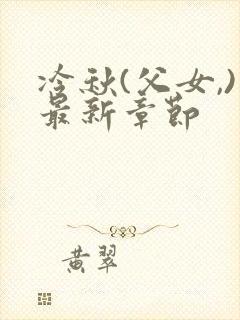 冷秋(父女,)
最新章节
黄翠